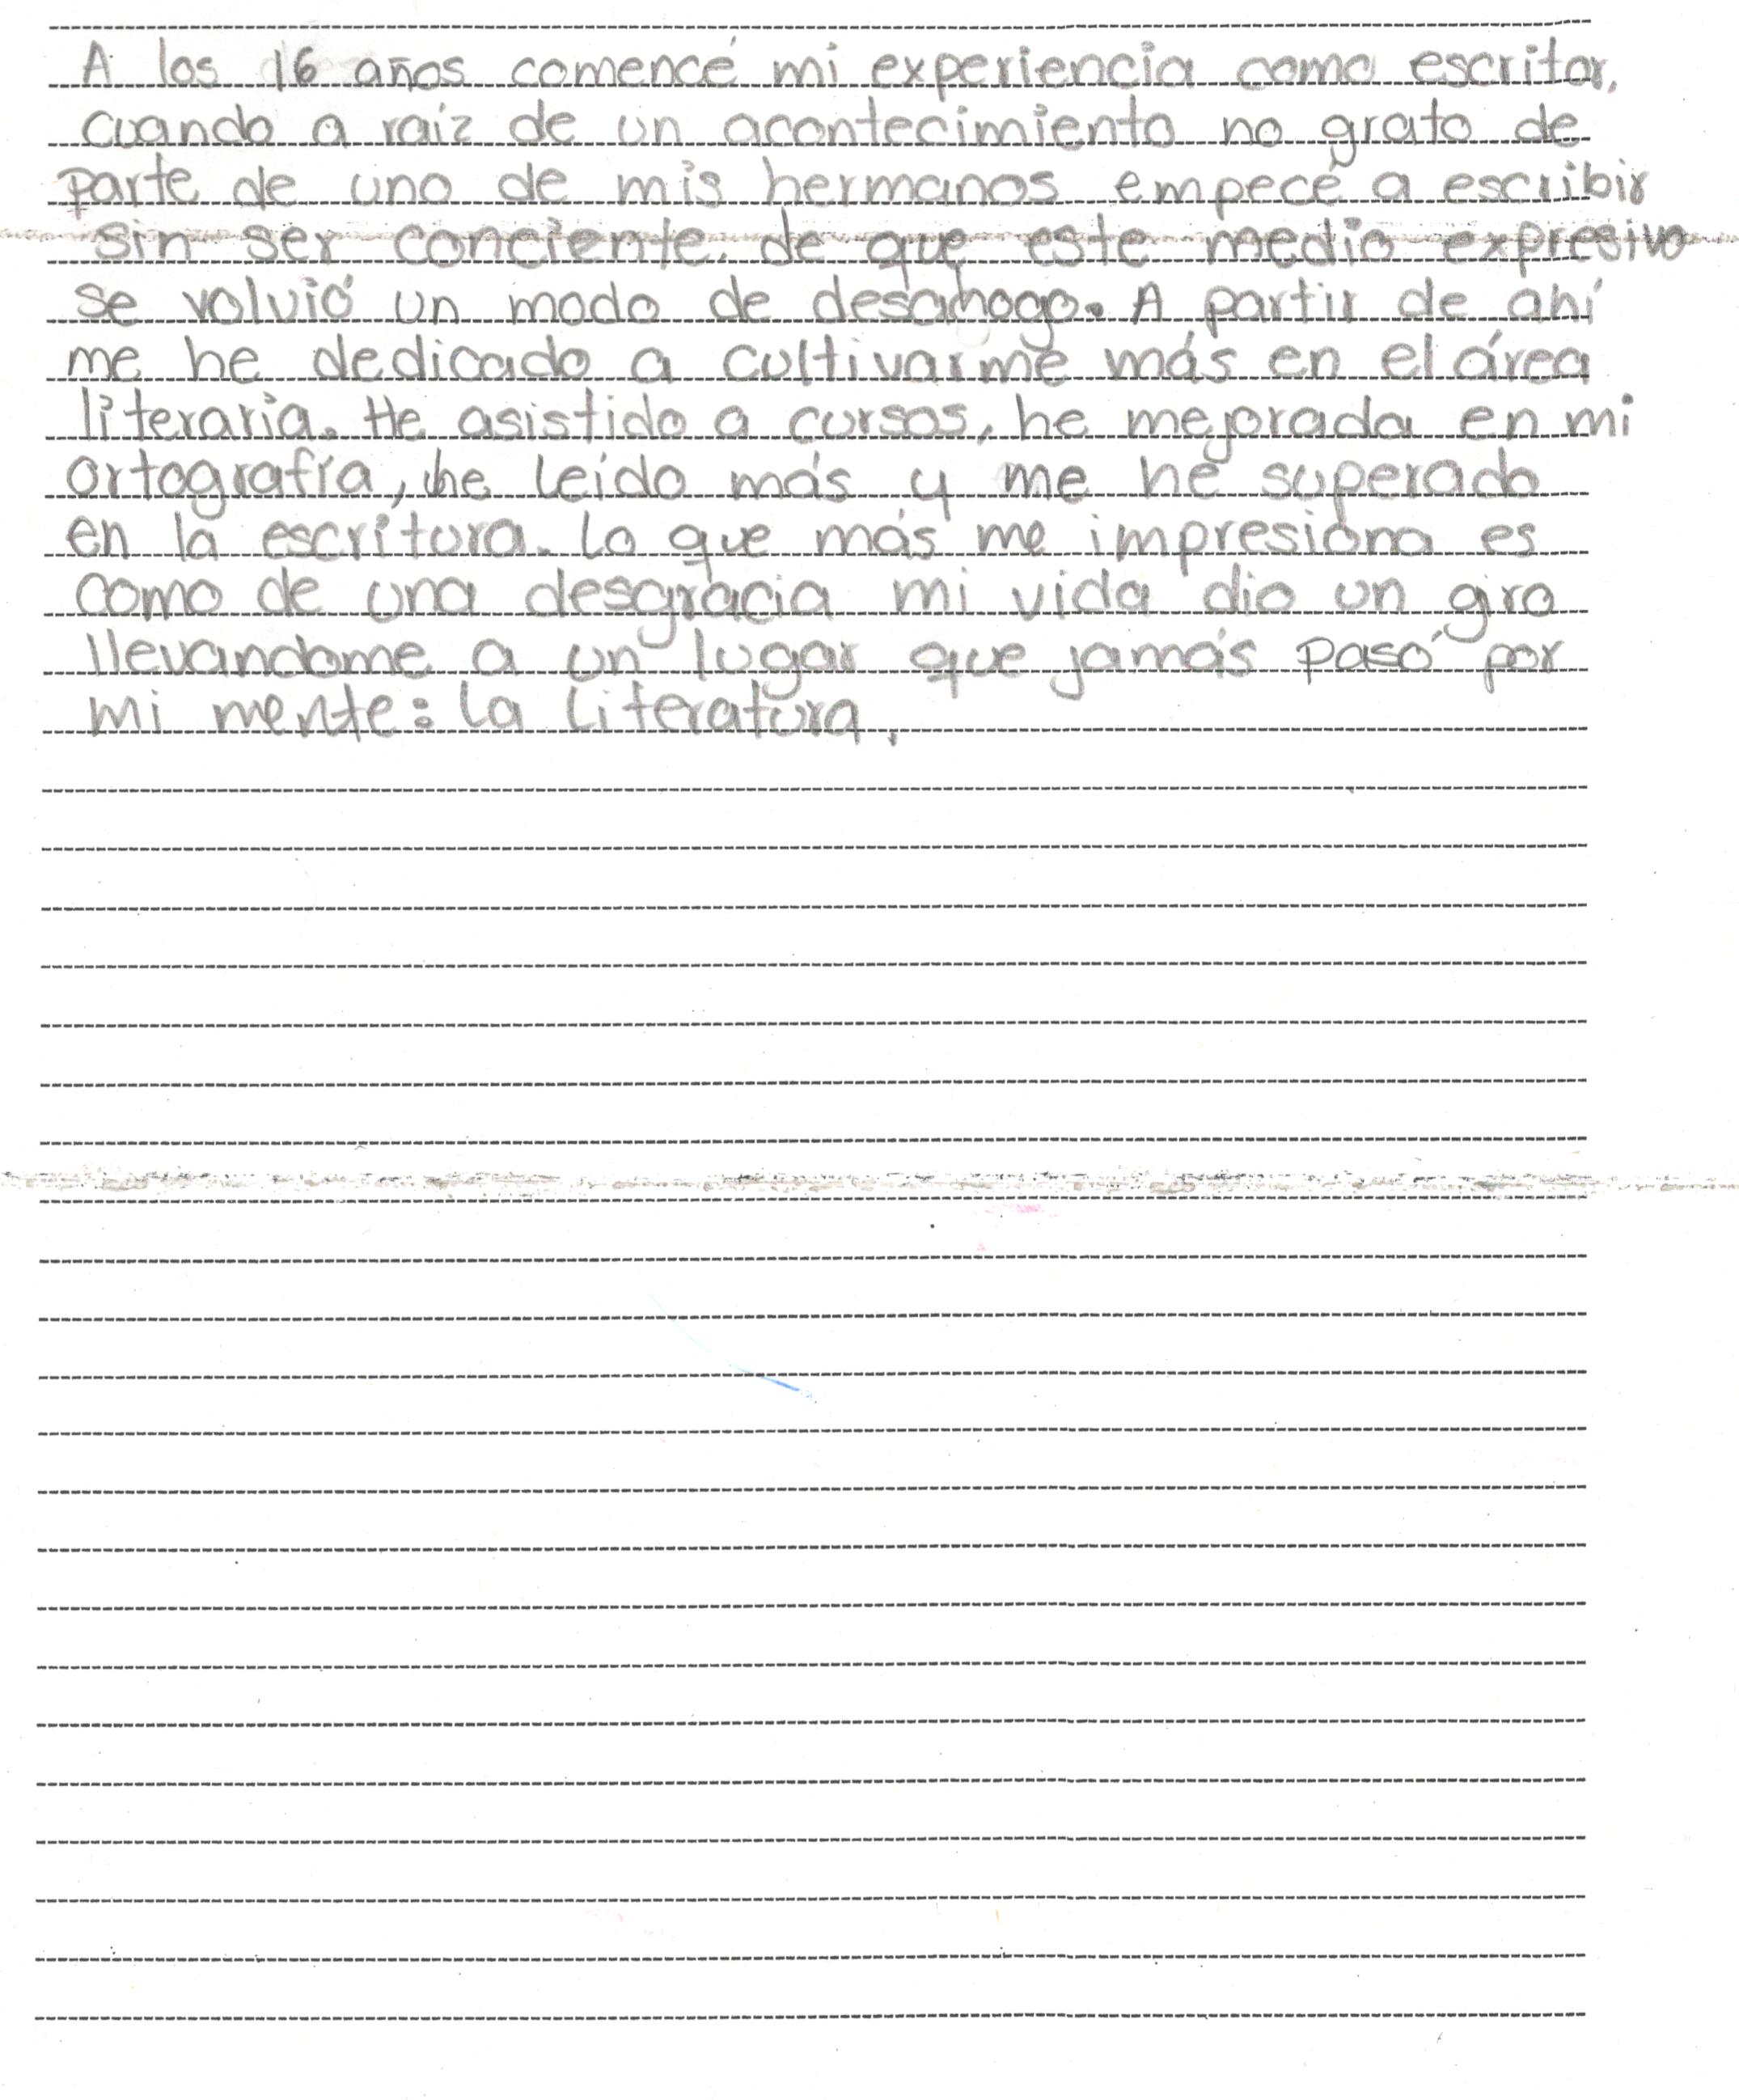 A los 16 años comencé mi experiencia como escritor,
cuando a raiz de un acontecimiento no grato de
parte de uno de mis hermanos empecé a escribir
sin ser conciente de que este medio expresivo
se volvió un modo de desahogo. A partir de ahí
me he dedicado a cultivarme más en el área
literaria. He asistido a cursos, he mejorado en mi
ortografía, he leido más y me he superado
en la escritura. Lo que más me impresiona es
como de una desgracia mi vida dio un giro
llevandome a un lugar que jamás pasó por
mi mente: la literatura.